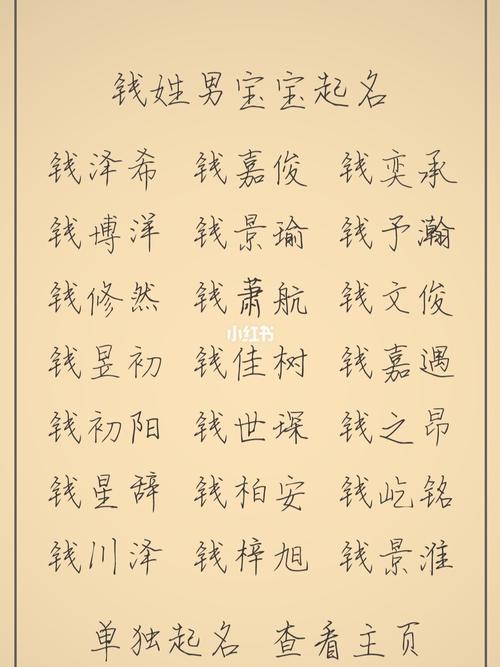 钱姓男宝宝起名
钱泽希 钱嘉俊 钱奕承
钱博洋 钱景瑜 钱予瀚
钱修然 钱萧航 钱文俊
小红书
钱昱初 钱佳树 钱嘉遇
钱初阳 钱世琛 钱之昂
钱星辞 钱柏安 钱屹铭
钱川泽 钱梓旭 钱景淮
单独起名 查看主页